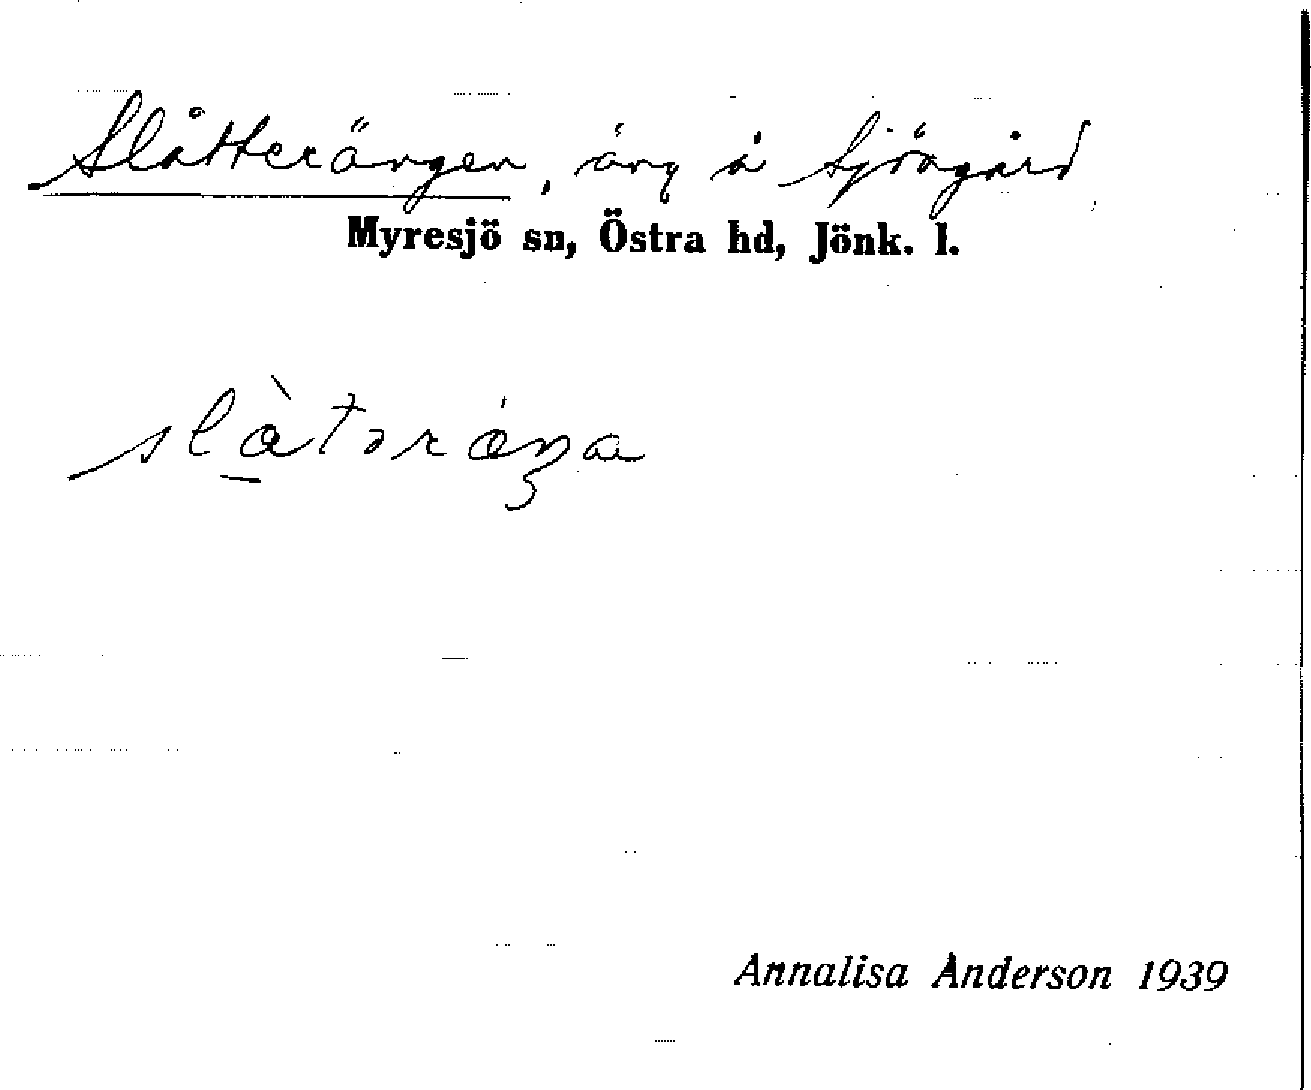 Slåtterängen, äng å Sjögård
Myresjö sn, Östra hd, Jönk. l.
slàtəráŋa
Annalisa Anderson 1939